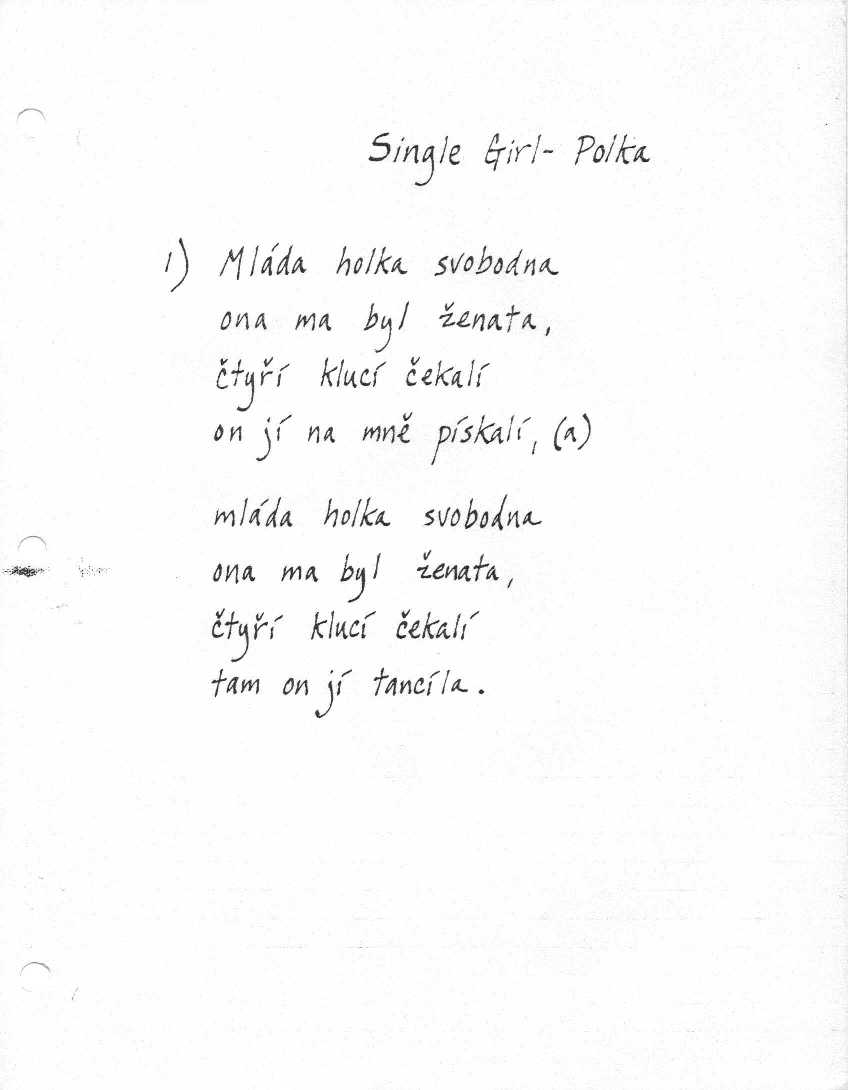 Single Girl- Polka
1) Mláda holka svobodna
ona ma byl ženata,
čtyří klucí čekalí
on jí na mně pískalí, (a)
mláda holka svobodna
ona ma byl ženata,
čtyří klucí čekalí
tam on jí tancíla.